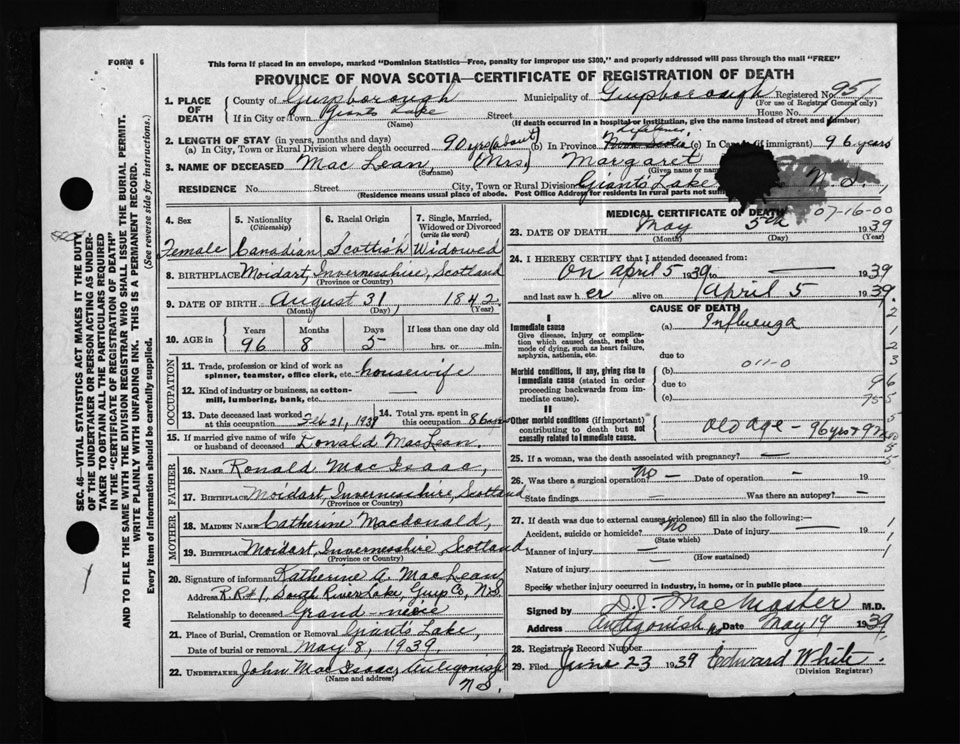 FORM 6
This form if placed in an envelope, marked "Dominion Statistics—Free, penalty for improper use $300," and properly addressed will pass through the mail "FREE"
PROVINCE OF NOVA SCOTIA—CERTIFICATE OF REGISTRATION OF DEATH
1. PLACE OF DEATH County of Guysborough Municipality of Guysborough Registered No. 951
(For use of Registrar General only)
If in City or Town Giants Lake Street House No.
(Name) (If death occurred in a hospital or institution, give the name instead of street and number)
2. LENGTH OF STAY (in years, months and days)
(a) In City, Town or Rural Division where death occurred 90 yrs (about) (b) In Province Nova Scotia Lifetime (c) In Canada (if immigrant) 96 years
3. NAME OF DECEASED Mac Lean (Mrs) Margaret
(Surname) (Given name or names)
RESIDENCE No. Street City, Town or Rural Division Giants Lake N. S.,
(Residence means usual place of abode. Post Office Address for residents in rural parts not
4. Sex 5. Nationality (Citizenship) 6. Racial Origin 7. Single, Married, Widowed or Divorced (write the word)
Female Canadian Scottish Widowed
8. BIRTHPLACE Moidart, Invernesshire, Scotland
(Province or Country)
9. DATE OF BIRTH August 31, 1842
(Month) (Day) (Year)
10. AGE in Years Months Days If less than one day old
96 8 5 hrs. or min.
OCCUPATION
11. Trade, profession or kind of work as spinner, teamster, office clerk, etc. housewife
12. Kind of industry or business, as cotton-mill, lumbering, bank, etc. —
13. Date deceased last worked at this occupation Feb 21, 1939 14. Total yrs. spent in this occupation 86
15. If married give name of wife or husband of deceased Donald MacLean.
FATHER
16. NAME Ronald Mac Isaac,
17. BIRTHPLACE Moidart, Invernesshire, Scotland
(Province or Country)
MOTHER
18. MAIDEN NAME Catherine Macdonald,
19. BIRTHPLACE Moidart, Invernesshire, Scotland
(Province or Country)
20. Signature of informant Katherine A. MacLean
Address R.R #1, South River Lake, Guys Co, N.S.
Relationship to deceased Grand-neice
21. Place of Burial, Cremation or Removal Giants Lake,
Date of burial or removal May 8, 1939.
22. UNDERTAKER John Mac Isaac, Antigonish
(Name and address) N S.
MEDICAL CERTIFICATE OF DEATH 07-16-00
23. DATE OF DEATH May 5th 1939
(Month) (Day) (Year)
24. I HEREBY CERTIFY that I attended deceased from:
On april 5 1939 to — 1939
and last saw h er alive on april 5 1939.
CAUSE OF DEATH
I
Immediate cause (a) Influenza
Give disease, injury or complication which caused death, not the mode of dying, such as heart failure, asphyxia, asthenia, etc. due to
Morbid conditions, if any, giving rise to immediate cause (stated in order proceeding backwards from immediate cause). (b) 011-0
due to
(c)
II
Other morbid conditions (if important) contributing to death but not causally related to immediate cause. Old Age - 96 yrs +
25. If a woman, was the death associated with pregnancy? —
26. Was there a surgical operation? No — Date of operation — 19
State findings — Was there an autopsy? —
27. If death was due to external causes (violence) fill in also the following:—
Accident, suicide or homicide? No Date of injury — 19
(State which)
Manner of injury — (How sustained)
Nature of injury —
Specify whether injury occurred in industry, in home, or in public place
Signed by D.J. MacMaster M.D.
Address Antigonish NS Date May 19 1939
28. Registrar's Record Number
29. Filed June 23 1939 Edward White
(Division Registrar)
SEC. 46—VITAL STATISTICS ACT MAKES IT THE DUTY OF THE UNDERTAKER OR PERSON ACTING AS UNDERTAKER TO OBTAIN ALL THE PARTICULARS REQUIRED IN THE "CERTIFICATE OF REGISTRATION OF DEATH" AND TO FILE THE SAME WITH THE DIVISION REGISTRAR WHO SHALL ISSUE THE BURIAL PERMIT.
WRITE PLAINLY WITH UNFADING INK. THIS IS A PERMANENT RECORD.
Every item of Information should be carefully supplied. (See reverse side for instructions.)